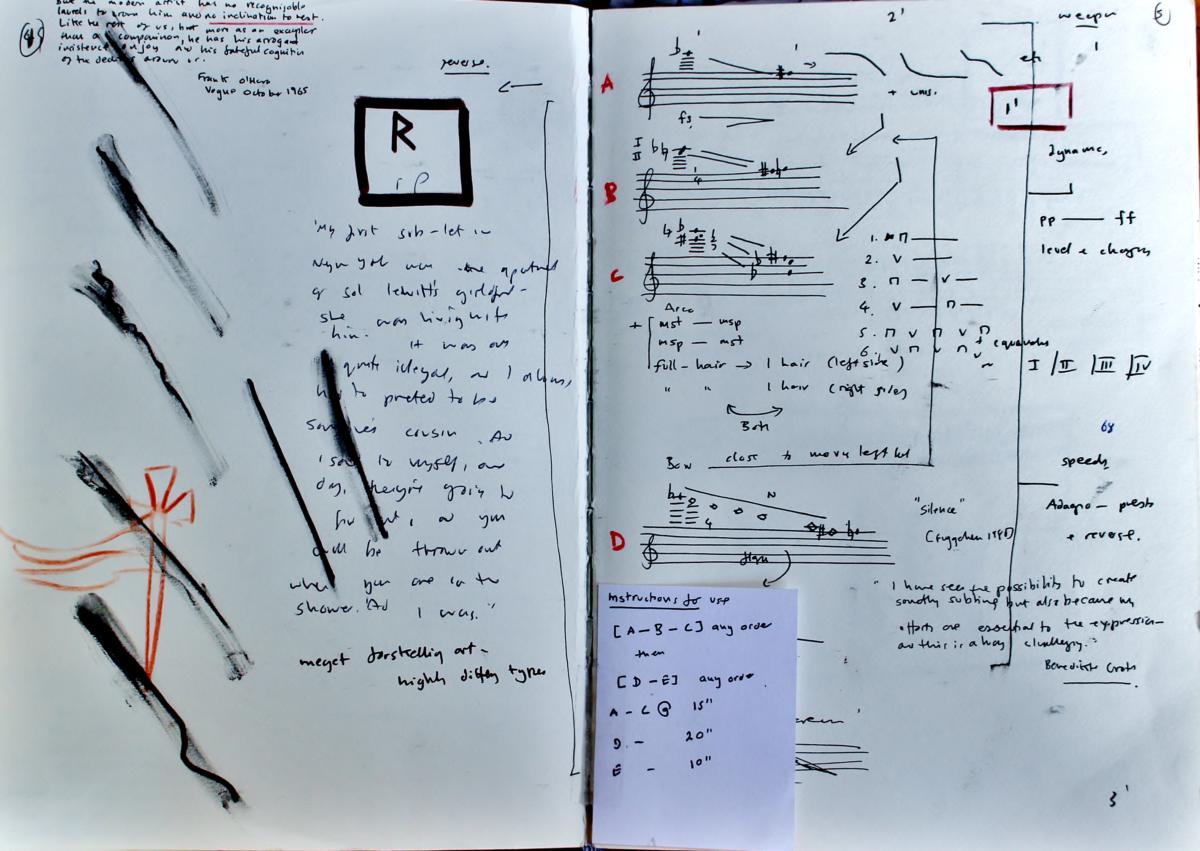 But the modern artist has no recognizable
laurels to crown him and no inclination to rest.
Like the rest of us, but more as an exemplar
than a companion, he has his arrogant
insistence, enjoy and his fateful cognition
of the around us.
Frank O'Hara
Vogue October 1965
reverse.
R
'My first sub-let in
New York was the apartment
of Sol Lewitt's girlfriend -
she was living with
him. It was as
quite illegal, and I always
had to pretend to be
someone's cousin. As
I said to myself, one
day, they're going to
find out, and you
will be thrown out
when you are in the
shower. And I was."
meget forskellig art -
highly different types
2'
weapon
5
A
fs
+ unis.
etc
1'
dynamics
I
II
B
pp — ff
level + changes
C
Arco
+ mst — msp
msp — mst
full-hair → 1 hair (left side)
" " 1 hair (right side)
Both
1. п
2. v
3. п — v —
4. v — п —
5. п v п v п
6. v п v п v
I / II / III / IV
68
Bow close to moving left hand
speeds
D
"Silence"
Adagio - presto
+ reverse.
"I have seen the possibility to create
something but also because my
efforts are essential to the expression
as this is a way challenging."
Instructions for use
[A-B-C] any order
then
[D-E] any order.
A - C @ 15"
D. - 20"
E - 10"
3'